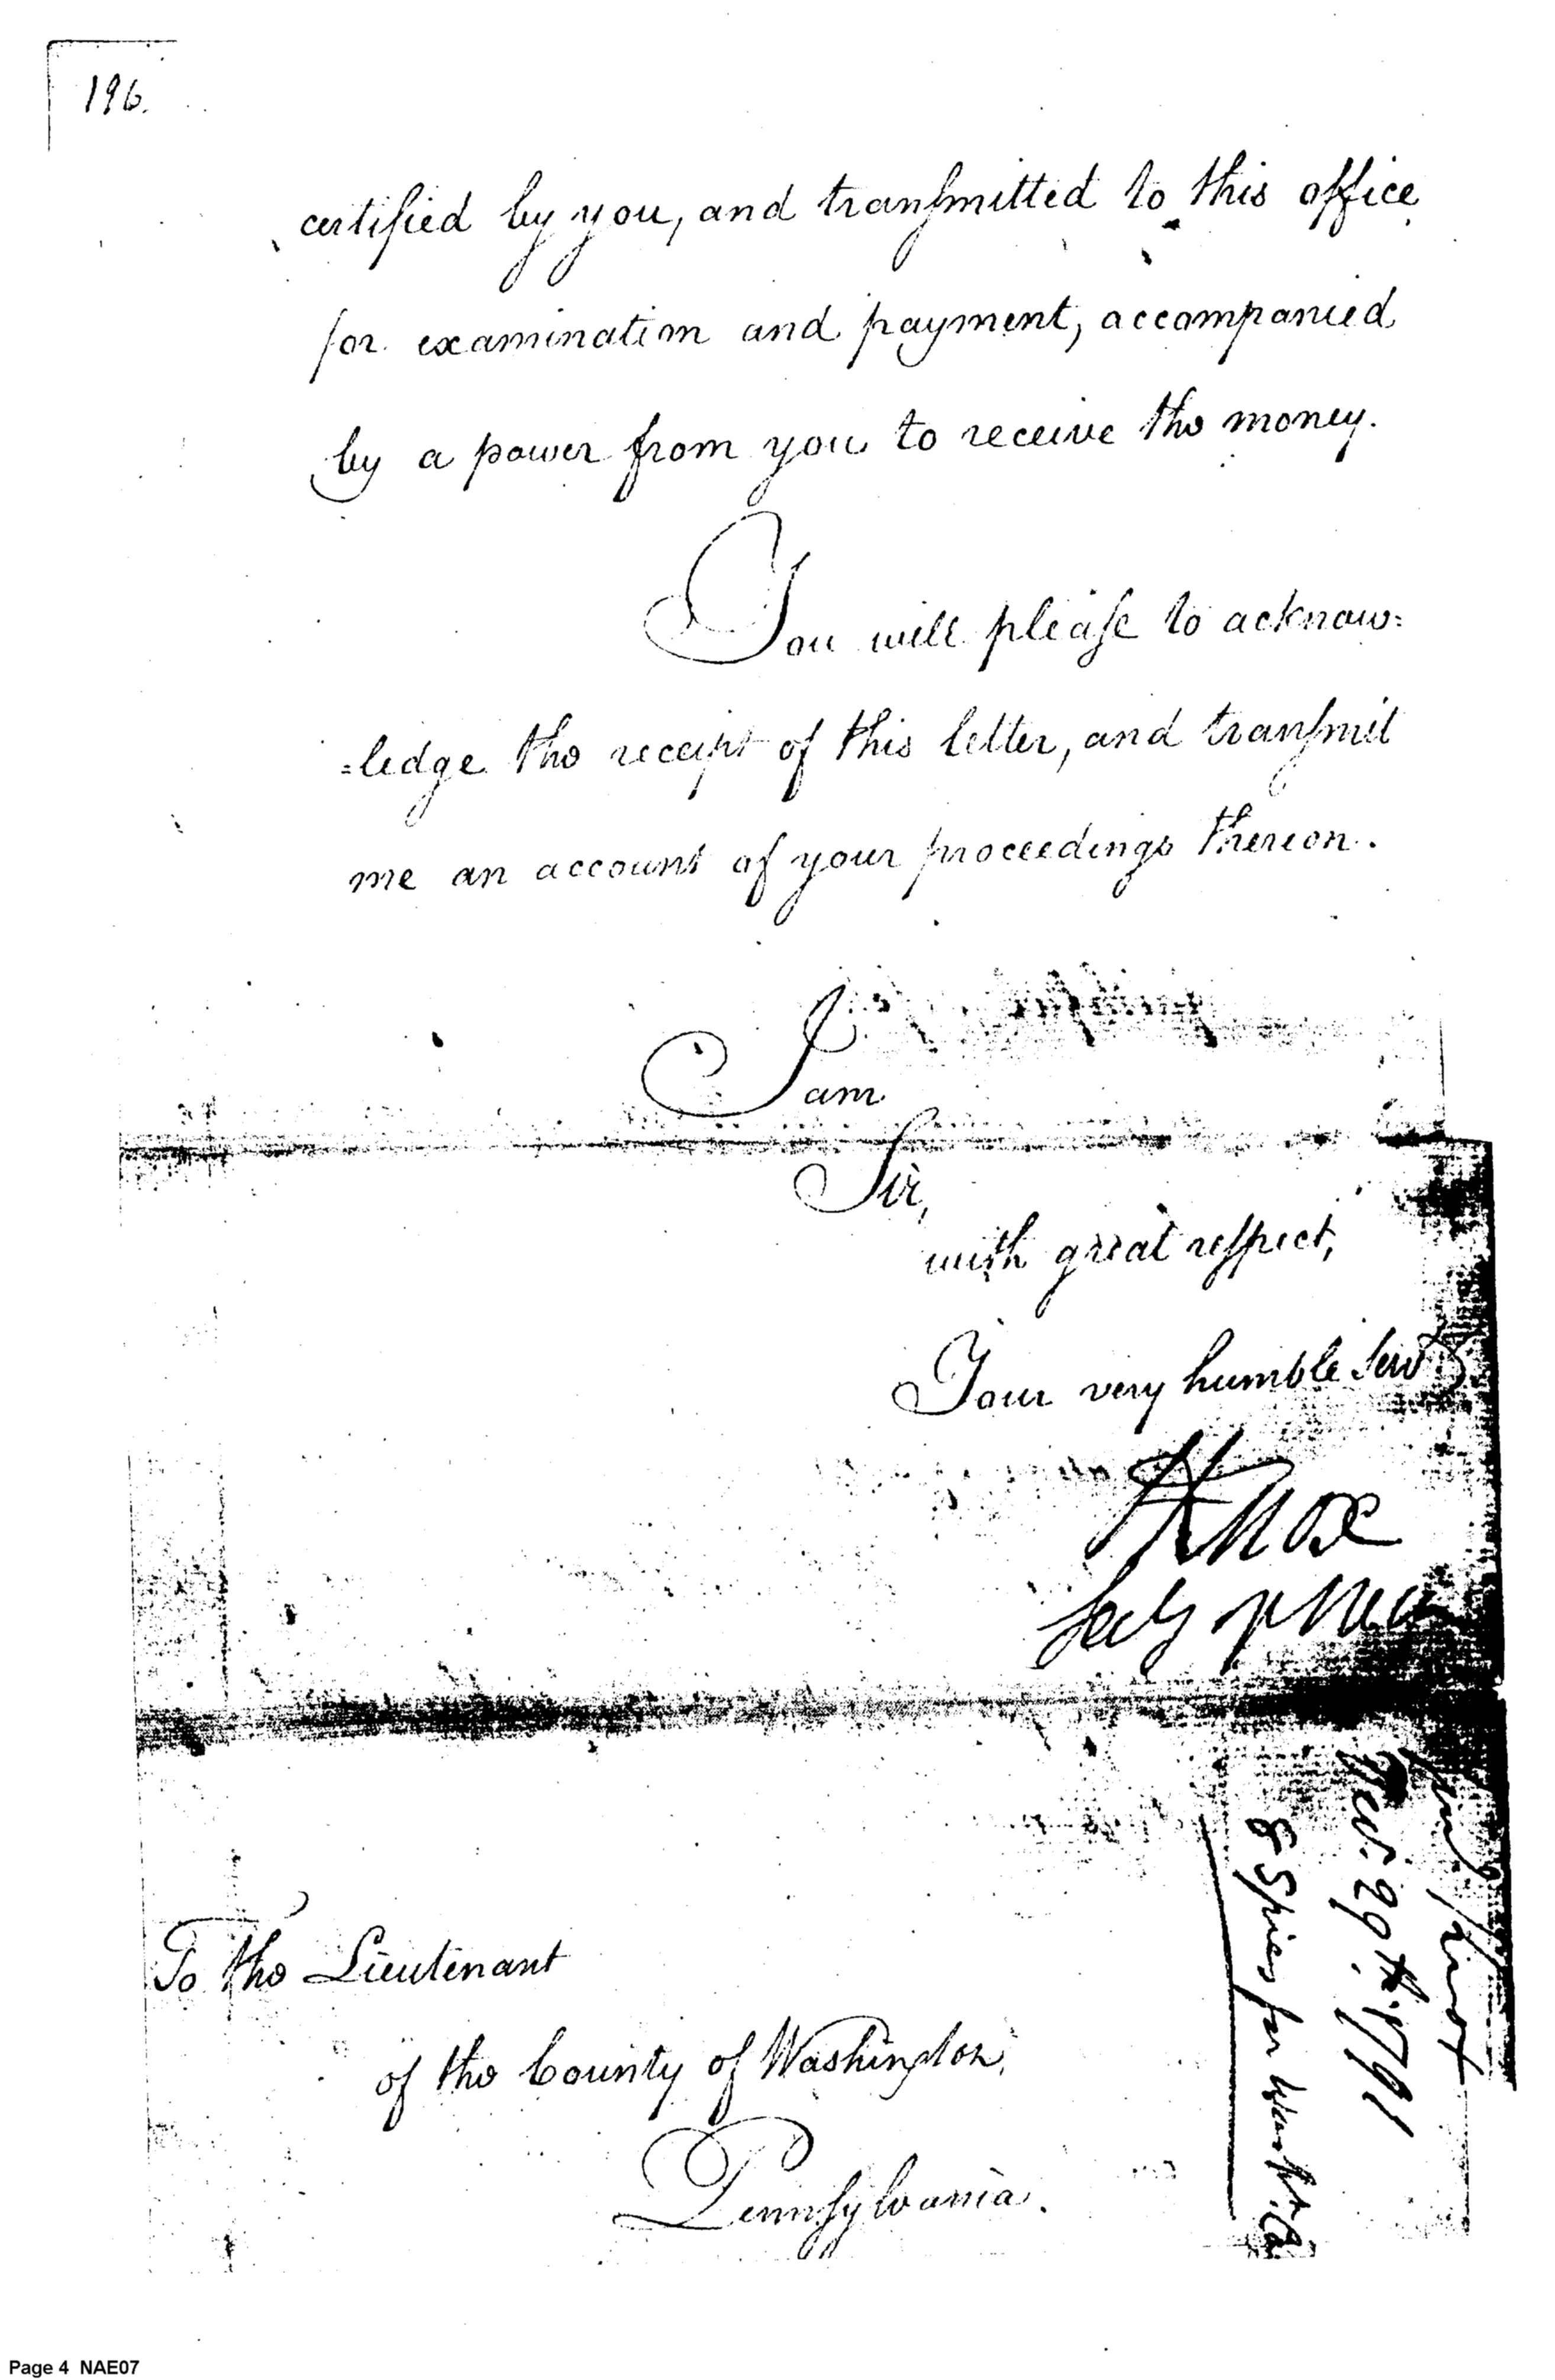 196.
certified by you, and transmitted to this office
for examination and payment, accompanied
by a power from you to receive the money.
You will please to acknow=
=ledge the receipt of this letter, and transmit
me an account of your proceedings thereon.
I am
Sir,
with great respect,
Your very humble Servt
HKnox
Secy of War
To the Lieutenant
of the County of Washington,
Pennsylvania.
29th. 1791
& Spies for Washn. Co.
Page 4 NAE07